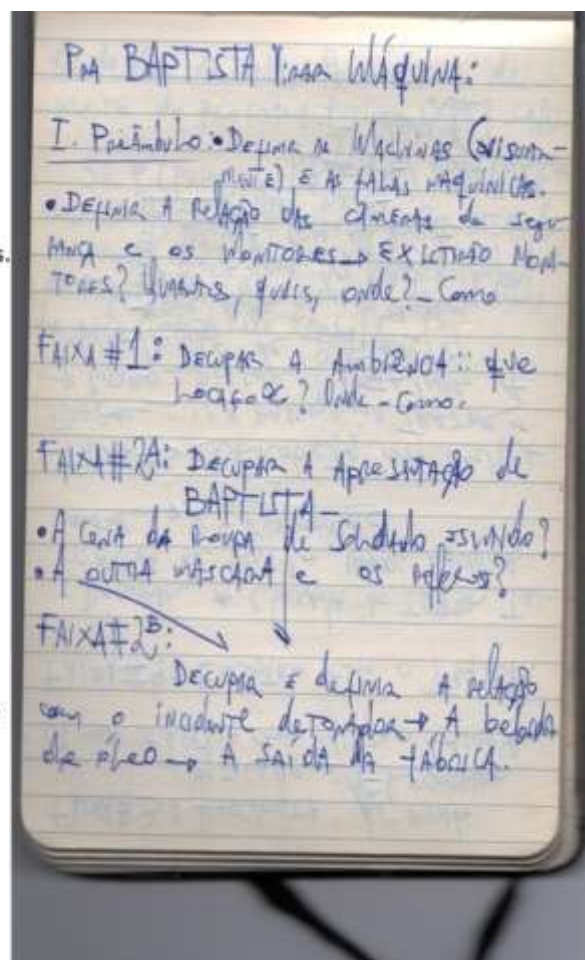 s.
PRA BAPTISTA Virar MÁQUINA:
I. Preâmbulo: • DEFINIR AS MACHINAS (VISUAL-
MENTE) E AS FALAS MAQUÍNICAS.
• DEFINIR A RELAÇÃO DAS CÂMERAS de segu
RANÇA e os MONITORES → EXISTIRÃO MONI-
TORES? QUANTOS, QUAIS, onde? _ Como
FAIXA #1: DECUPAR A AMBIÊNCIA :: que
Locações? Onde - Como.
FAIXA #2A: DECUPAR A APRESENTAÇÃO de
BAPTISTA -
• A CENA DA ROUPA de Soldado
• A OUTRA MÁSCARA e os reflexos?
FAIXA #2B:
DECUPAR E definir A RELAÇÃO
com o incidente detonador → A bebida
de óleo → A SAÍDA DA FÁBRICA.